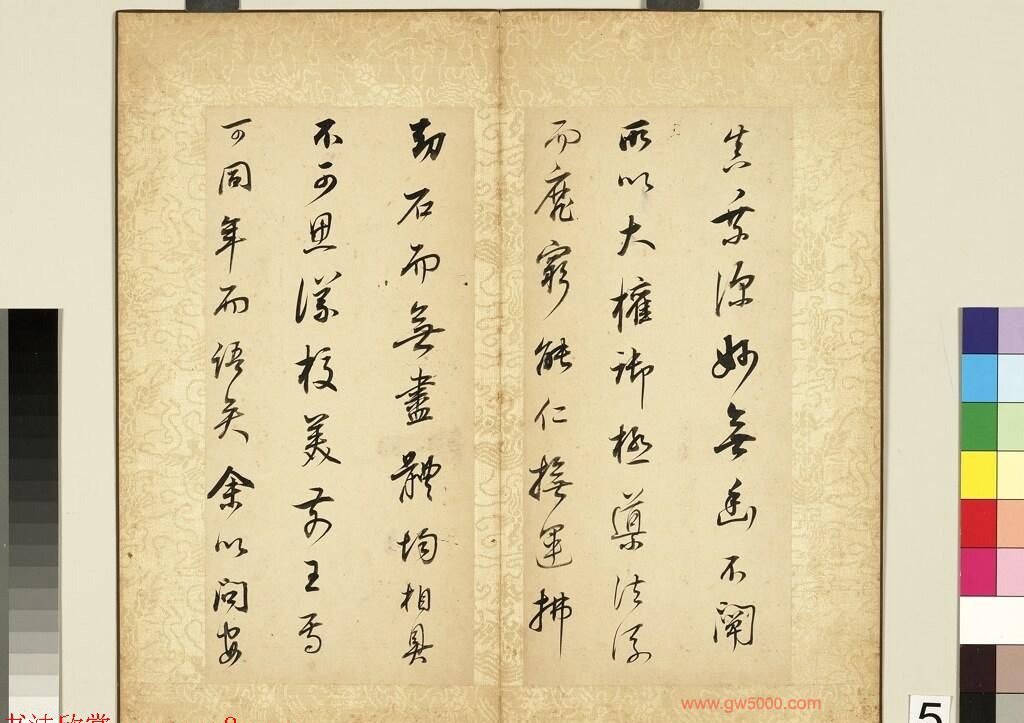 真乘深妙無幽不闡
所以大權御極導法流
而靡窮能仁撫運拂
劫石而無盡體均相具
不可思議校美前王焉
可同年而語矣余以問安
www.gw5000.com
5